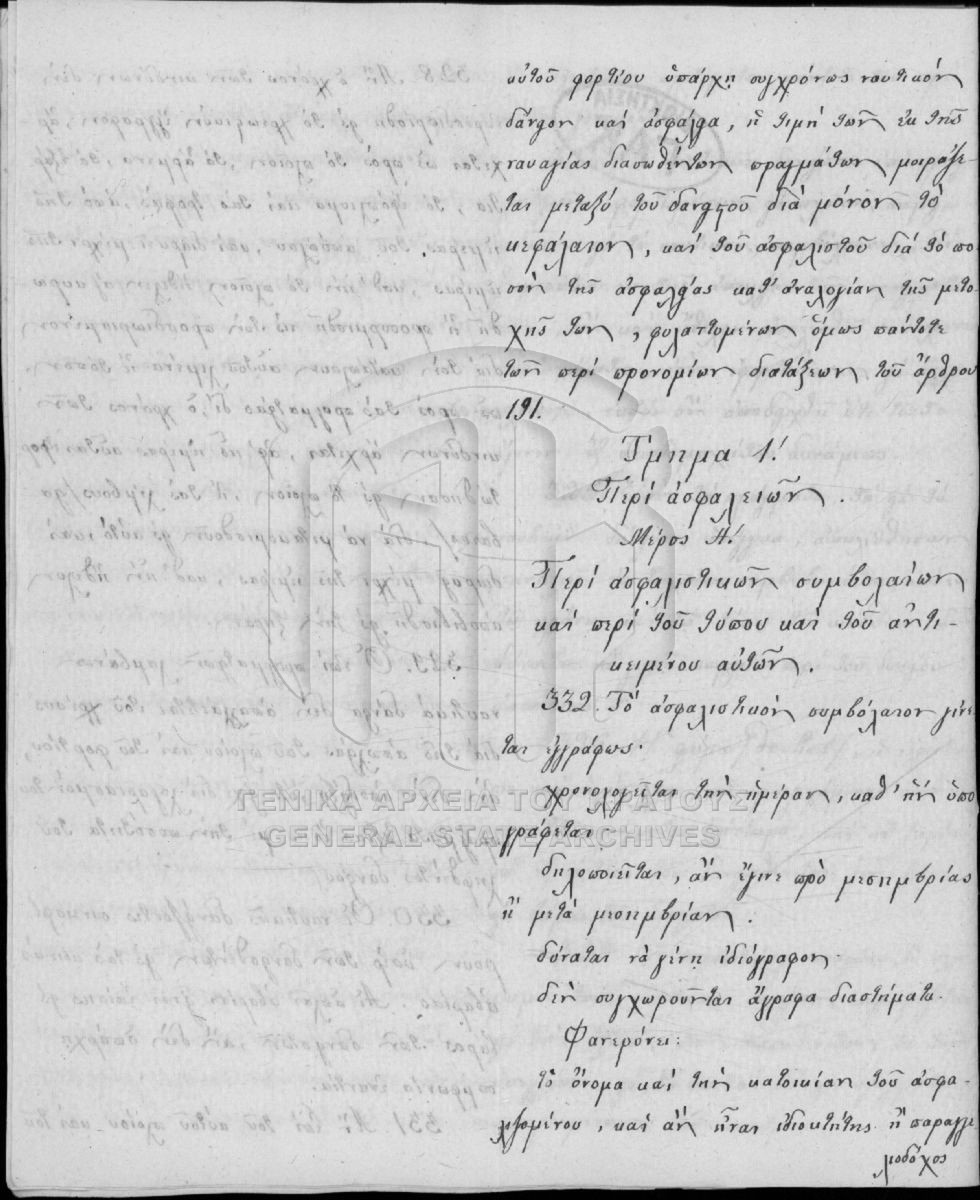 αὐτοῦ φορτίου ὑπάρχῃ συγχρόνως ναυτικόν
δάνειον καί ἀσφάλεια, ἡ τιμή τῶν ἐκ τῆς
ναυαγίας διασωθέντων πραγμάτων μοιράζε-
ται μεταξύ τοῦ δανειστοῦ διά μόνον τό
κεφάλαιον, καί τοῦ ἀσφαλιστοῦ διά τό πο
σόν τῆς ἀσφαλείας κατ' ἀναλογίαν τῆς μετο
χῆς των, φυλαττομένων ὅμως πάντοτε
τῶν περί προνομίων διατάξεων τοῦ ἄρθρου
191.
Τμημα Ι.
Περί ἀσφαλειῶν.
Μέρος Α'.
Περί ἀσφαλιστικῶν συμβολαίων
καί περί τοῦ τύπου καί τοῦ ἀντι-
κειμένου αὐτῶν.
332. Τό ἀσφαλιστικόν συμβόλαιον γίνε
ται ἐγγράφως.
χρονολογεῖται τήν ἡμέραν, καθ' ἥν ὑπο
γράφεται
δηλοποιεῖται, ἄν ἔγινε πρό μεσημβρίας
ἤ μετά μεσημβρίαν.
δύναται νά γίνῃ ἰδιόγραφον.
δέν συγχωροῦνται ἄγραφα διαστήματα.
Φανερόνει:
τό ὄνομα καί τήν κατοικίαν τοῦ ἀσφα-
λιζομένου, καί ἄν ἦναι ἰδιοκτήτης ἤ παραγγε
λιοδόχος
ΓΕΝΙΚΑ ΑΡΧΕΙΑ ΤΟΥ ΚΡΑΤΟΥΣ
GENERAL STATE ARCHIVES